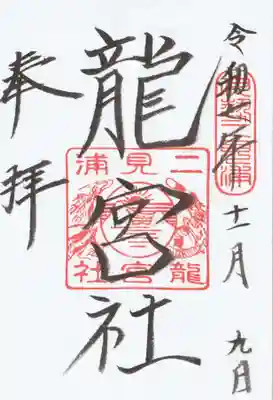 令和元年十一月九日
龍宮社
奉拝
二見浦
龍宮社